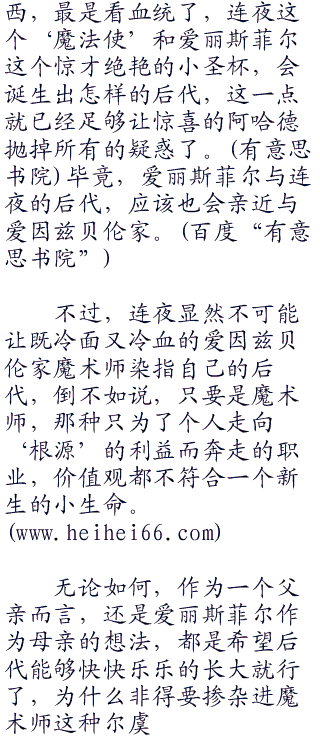 西，最是看血统了，连夜这
个‘魔法使’和爱丽斯菲尔
这个惊才绝艳的小圣杯，会
诞生出怎样的后代，这一点
就已经足够让惊喜的阿哈德
抛掉所有的疑惑了。(有意思
书院)毕竟，爱丽斯菲尔与连
夜的后代，应该也会亲近与
爱因兹贝伦家。(百度“有意
思书院”)
不过，连夜显然不可能
让既冷面又冷血的爱因兹贝
伦家魔术师染指自己的后
代，倒不如说，只要是魔术
师，那种只为了个人走向
‘根源’的利益而奔走的职
业，价值观都不符合一个新
生的小生命。
(www.heihei66.com)
无论如何，作为一个父
亲而言，还是爱丽斯菲尔作
为母亲的想法，都是希望后
代能够快快乐乐的长大就行
了，为什么非得要掺杂进魔
术师这种尔虞